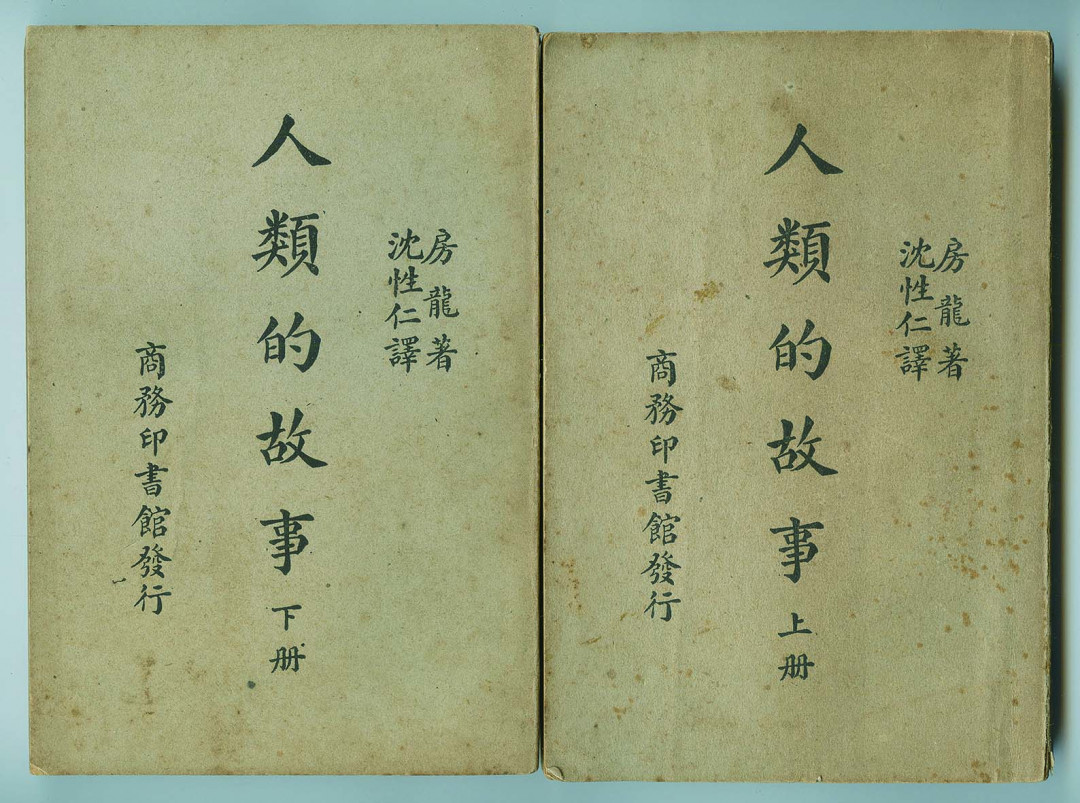 房龍著
沈性仁譯
人類的故事 上册
商務印書館發行
房龍著
沈性仁譯
人類的故事 下册
商務印書館發行